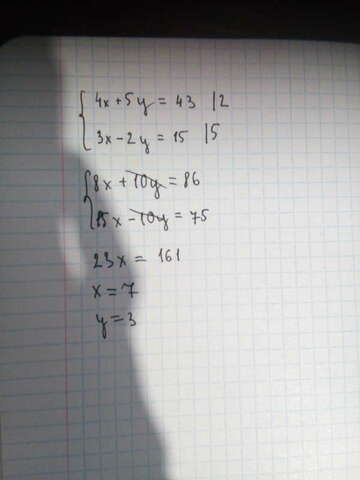 4x+5y = 43 |2
3x-2y = 15 |5
8x + 10y = 86
15x - 10y = 75
23x = 161
x = 7
y = 3